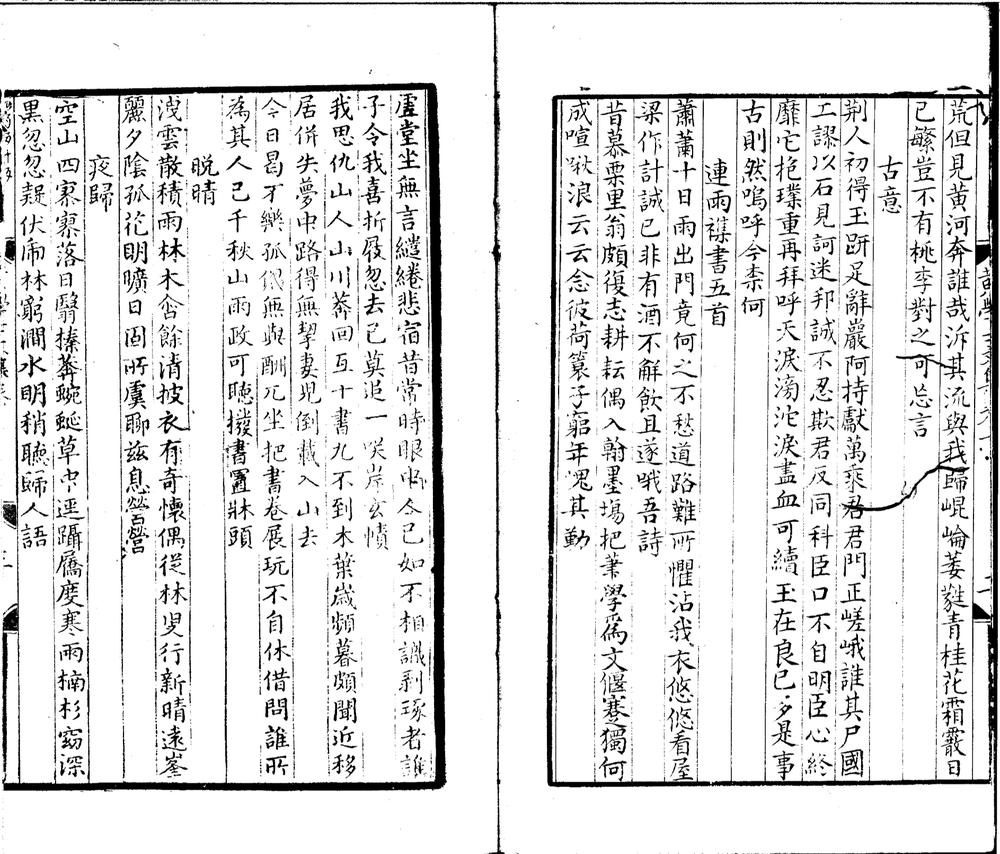 荒但見黃河奔誰哉泝其流與我歸崐崘萎蕤青桂花霜霰日
已繁豈不有桃李對之可忘言
古意
荆人初得玉趼足辭巖阿持獻萬乘君君門正嵯峨誰其尸國
工謬以石見訶迷邦誠不忍欺君反同科臣口不自明臣心終
靡它抱璞重再拜呼天淚滂沱淚盡血可續玉在良已多是事
古則然嗚呼今柰何
連雨襍書五首
蕭蕭十日雨出門竟何之不愁道路難所懼沾我衣悠悠看屋
梁作計誠已非有酒不解飲且遂哦吾詩
昔慕栗里翁頗復志耕耘偶入翰墨塲把筆學爲文偃蹇獨何
成喧啾浪云云念彼荷篠子窮年愧其動
虛堂坐無言繾綣悲宿昔當時眼中今已如不相識剥琢者誰
子令我喜折屐忽去已莫追一咲岸玄幘
我思仇山人山川莽回互十書九不到木葉嵗頻暮頗聞近移
居併失夢中路得無挈妻兒倒載入山去
今日曷不樂孤㑃無與酬兀坐把書卷展玩不自休借問誰所
為其人已千秋山雨政可聽撥書置牀頭
晚晴
洩雲散積雨林木含餘清披衣有奇懷偶從林叟行新晴遠峯
麗夕陰孤花明曠日固所虞聊兹息營營
夜歸
空山四寡寡落日翳榛莽蜿蜒草中逕躡屩度寒雨楠杉窈深
黑忽忽疑伏虎林窮澗水明稍聽歸人語